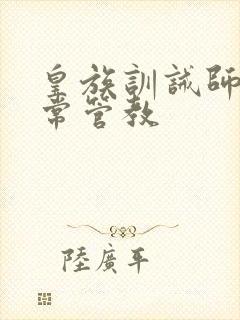 皇族訓誡師
常管教
陸廣平